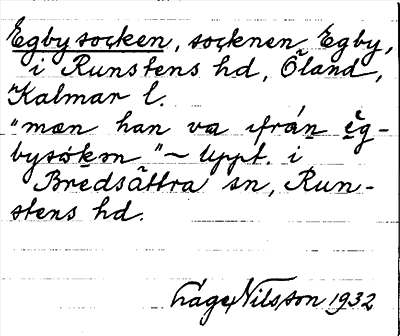 Egbysocken, socknen Egby,
i Runstens hd, Öland,
Kalmar l.
"mæn han va ifrán ég-
bysòkən" ~ Uppt. i
Bredsättra sn, Run-
stens hd.
Åage Nilsson 1932